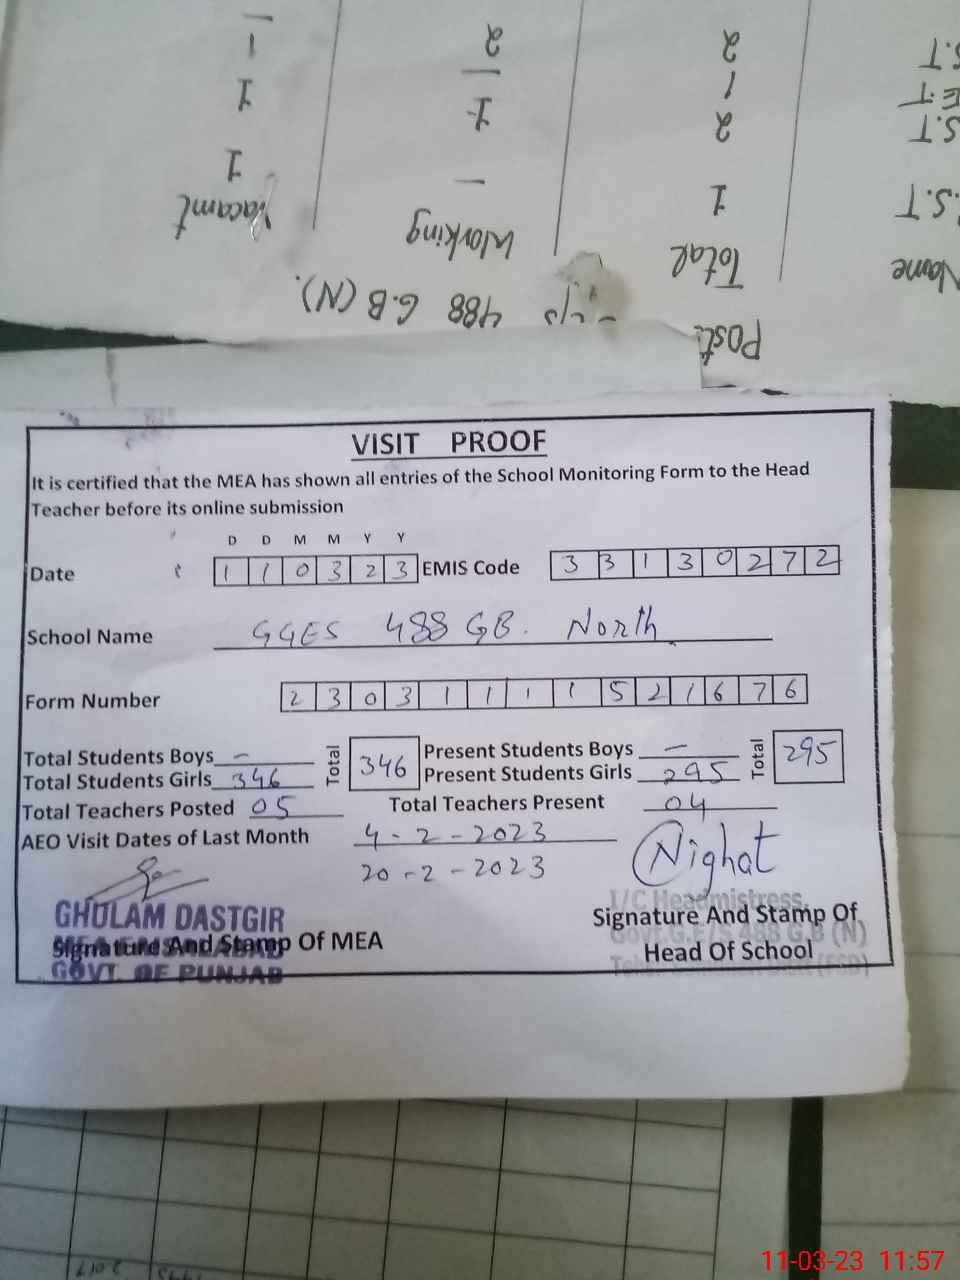 Post
488 G.B (N).
Name Total Working Vacant
S.T 1 – 1
S.T 2 1 1
E.T 1 – 1
S.T 2 2 –
VISIT PROOF
It is certified that the MEA has shown all entries of the School Monitoring Form to the Head
Teacher before its online submission
D D M M Y Y
Date 1 1 0 3 2 3 EMIS Code 3 3 1 3 0 2 7 2
School Name GGES 488 GB. North
Form Number 2 3 0 3 1 1 1 1 5 2 1 6 7 6
Total Students Boys – Total 346 Present Students Boys – Total 295
Total Students Girls 346 Present Students Girls 295
Total Teachers Posted 05 Total Teachers Present 04
AEO Visit Dates of Last Month 4-2-2023
20-2-2023
Nighat
GHULAM DASTGIR
I/C Headmistress
Signature And Stamp Of MEA
Signature And Stamp Of
Govt. G.E/S 488 G.B (N)
Head Of School
GOVT. OF PUNJAB
(FSD)
2017
11-03-23 11:57